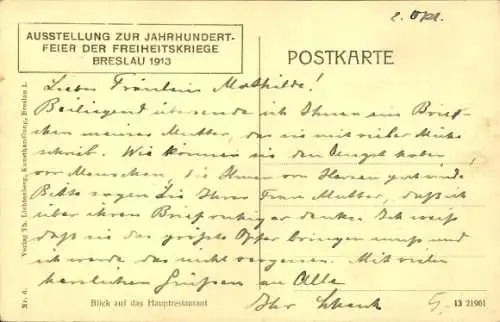 2. Okt.
AUSSTELLUNG ZUR JAHRHUNDERT-
FEIER DER FREIHEITSKRIEGE
BRESLAU 1913
POSTKARTE
Liebes Fräulein Mathilde!
Beiliegend übersende ich Ihnen ein Brief-
chen meiner Mutter, das sie mit vieler Mühe
schrieb. Wie können sie denn Angst haben,
vor Menschen, die Ihnen von Herzen gut sind
Bitte sagen Sie Ihrer Frau Mutter, daß ich
über ihren Brief ruhiger denke. Ich weiß
daß sie das größte Opfer bringen muß und
ich werde das nicht vergessen. Mit vielen
herzlichen Grüßen an Alle
Ihr
Verlag Th. Lichtenberg, Kunsthandlung, Breslau I.
Nr. 4.
Blick auf das Hauptrestaurant
13 21901